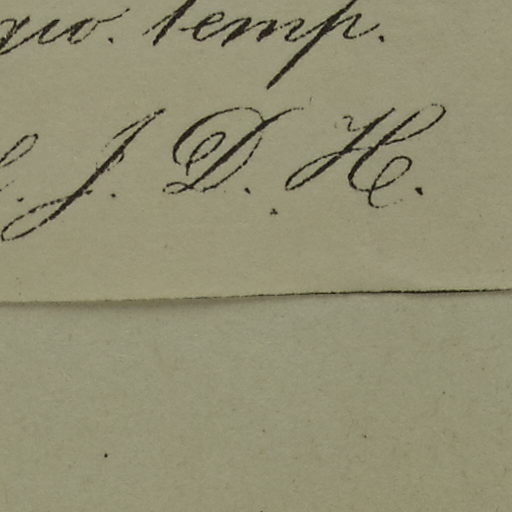 gio. temp.
J. D. H.